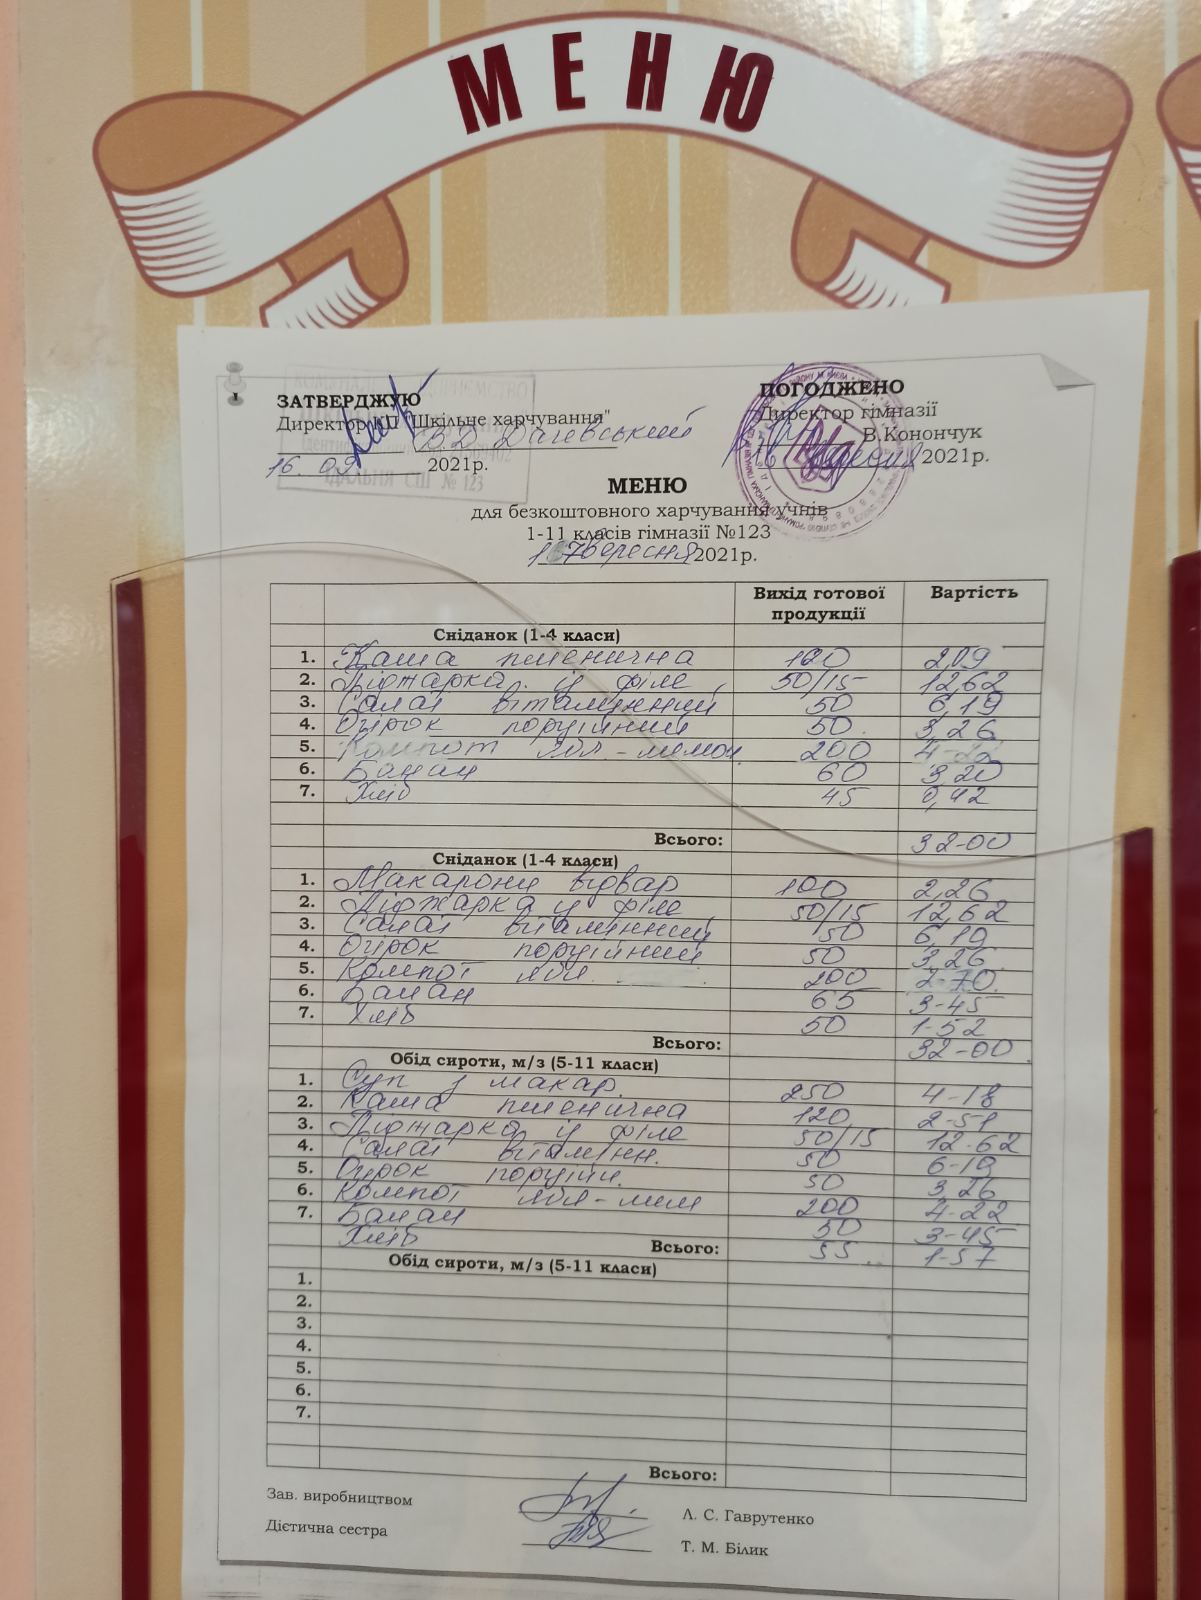 МЕНЮ
ЗАТВЕРДЖУЮ
Директор КП "Шкільне харчування"
В.Д. Дачевський
16. 09 2021р.
ІДАЛЬНЯ СШ № 123
ПОГОДЖЕНО
Директор гімназії
В.Конончук
16 вересня 2021р.
МЕНЮ
для безкоштовного харчування учнів
1-11 класів гімназії №123
17 вересня 2021р.
Вихід готової продукції Вартість
Сніданок (1-4 класи)
1. Каша пшенична 120 2,09
2. Піджарка із філе 50/15 12,62
3. Салат вітамінний 50 6,19
4. Огірок порційний 50 3,26
5. Компот ябл.-лимон. 200 4-22
6. Банан 60 3,20
7. Хліб 45 0,42
Всього: 32-00
Сніданок (1-4 класи)
1. Макарони відвар 100 2,26
2. Піджарка із філе 50/15 12,62
3. Салат вітамінний 50 6,19
4. Огірок порційний 50 3,26
5. Компот ябл. 200 2-70
6. Банан 65 3-45
7. Хліб 50 1-52
Всього: 32-00
Обід сироти, м/з (5-11 класи)
1. Суп з макар. 250 4-18
2. Каша пшенична 120 2-51
3. Піджарка із філе 50/15 12-62
4. Салат вітамінн. 50 6-19
5. Огірок порційн. 50 3,26
6. Компот ябл-лим 200 4-22
7. Банан 50 3-45
Хліб Всього: 55 1-57
Обід сироти, м/з (5-11 класи)
1.
2.
3.
4.
5.
6.
7.
Всього:
Зав. виробництвом Л. С. Гаврутенко
Дієтична сестра Т. М. Білик